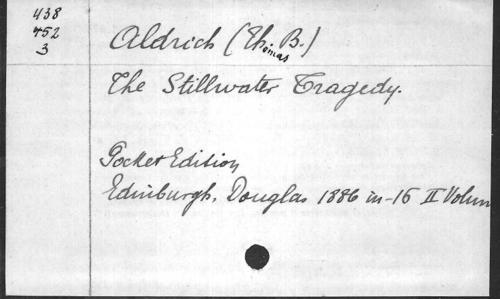 438
752
3
Aldrich (Thomas B.)
The Stillwater Tragedy.
Pocket Edition
Edinburgh, Douglas 1886 in-16 II Volum